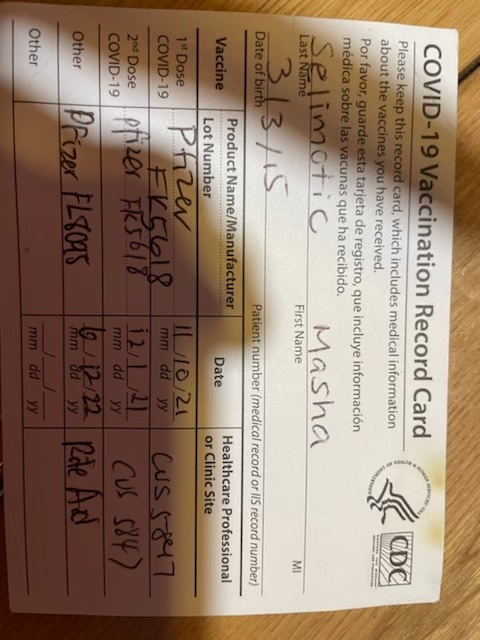 COVID-19 Vaccination Record Card
Please keep this record card, which includes medical information
about the vaccines you have received.
Por favor, guarde esta tarjeta de registro, que incluye información
médica sobre las vacunas que ha recibido.
CDC
Selimotic Masha
Last Name First Name MI
3/3/15
Date of birth Patient number (medical record or IIS record number)
Vaccine Product Name/Manufacturer Date Healthcare Professional
Lot Number or Clinic Site
1st Dose Pfizer 11/10/21 CVS 5847
COVID-19 FK5618 mm dd yy
2nd Dose pfizer FK5618 12/1/21 CVS 5847
COVID-19 mm dd yy
Other Pfizer FL8095 6/12/22 Rite Aid
mm dd yy
Other / /
mm dd yy